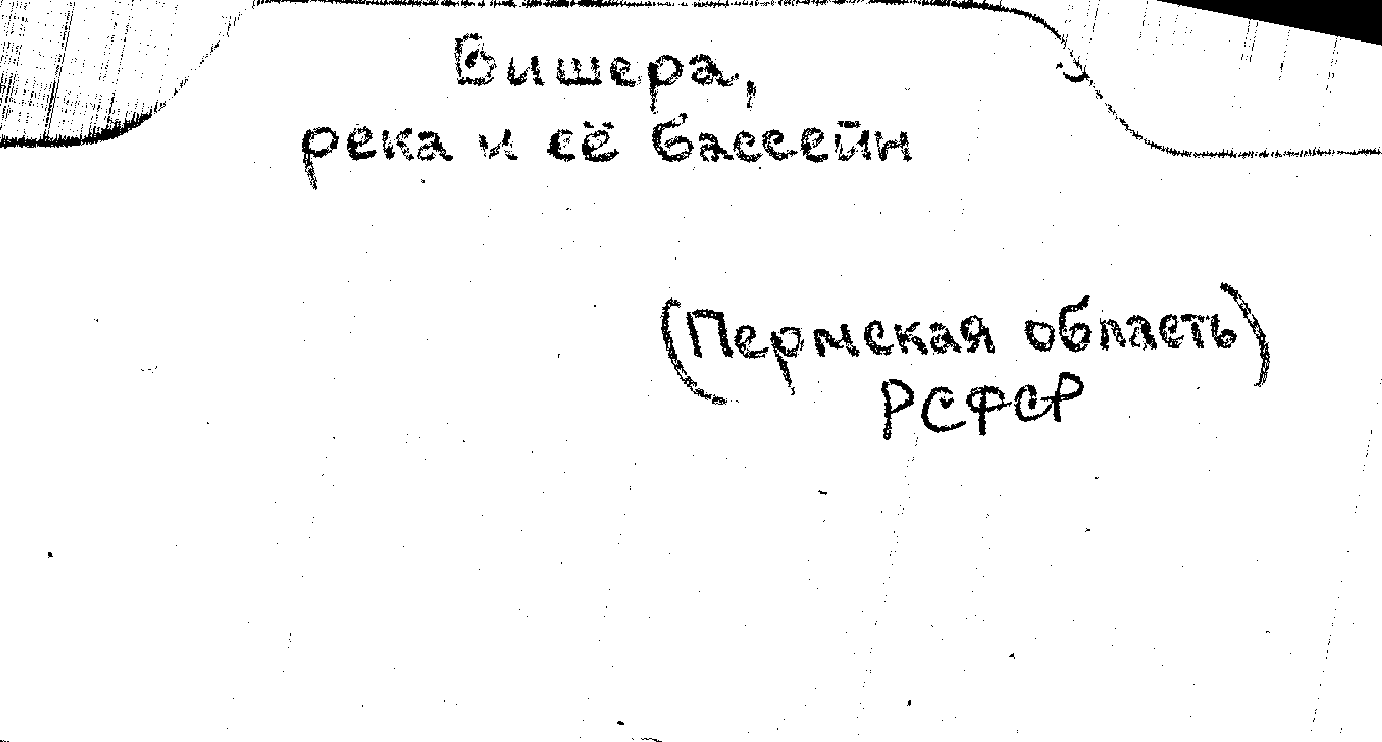 Вишера,
река и её бассейн
(Пермская область)
РСФСР